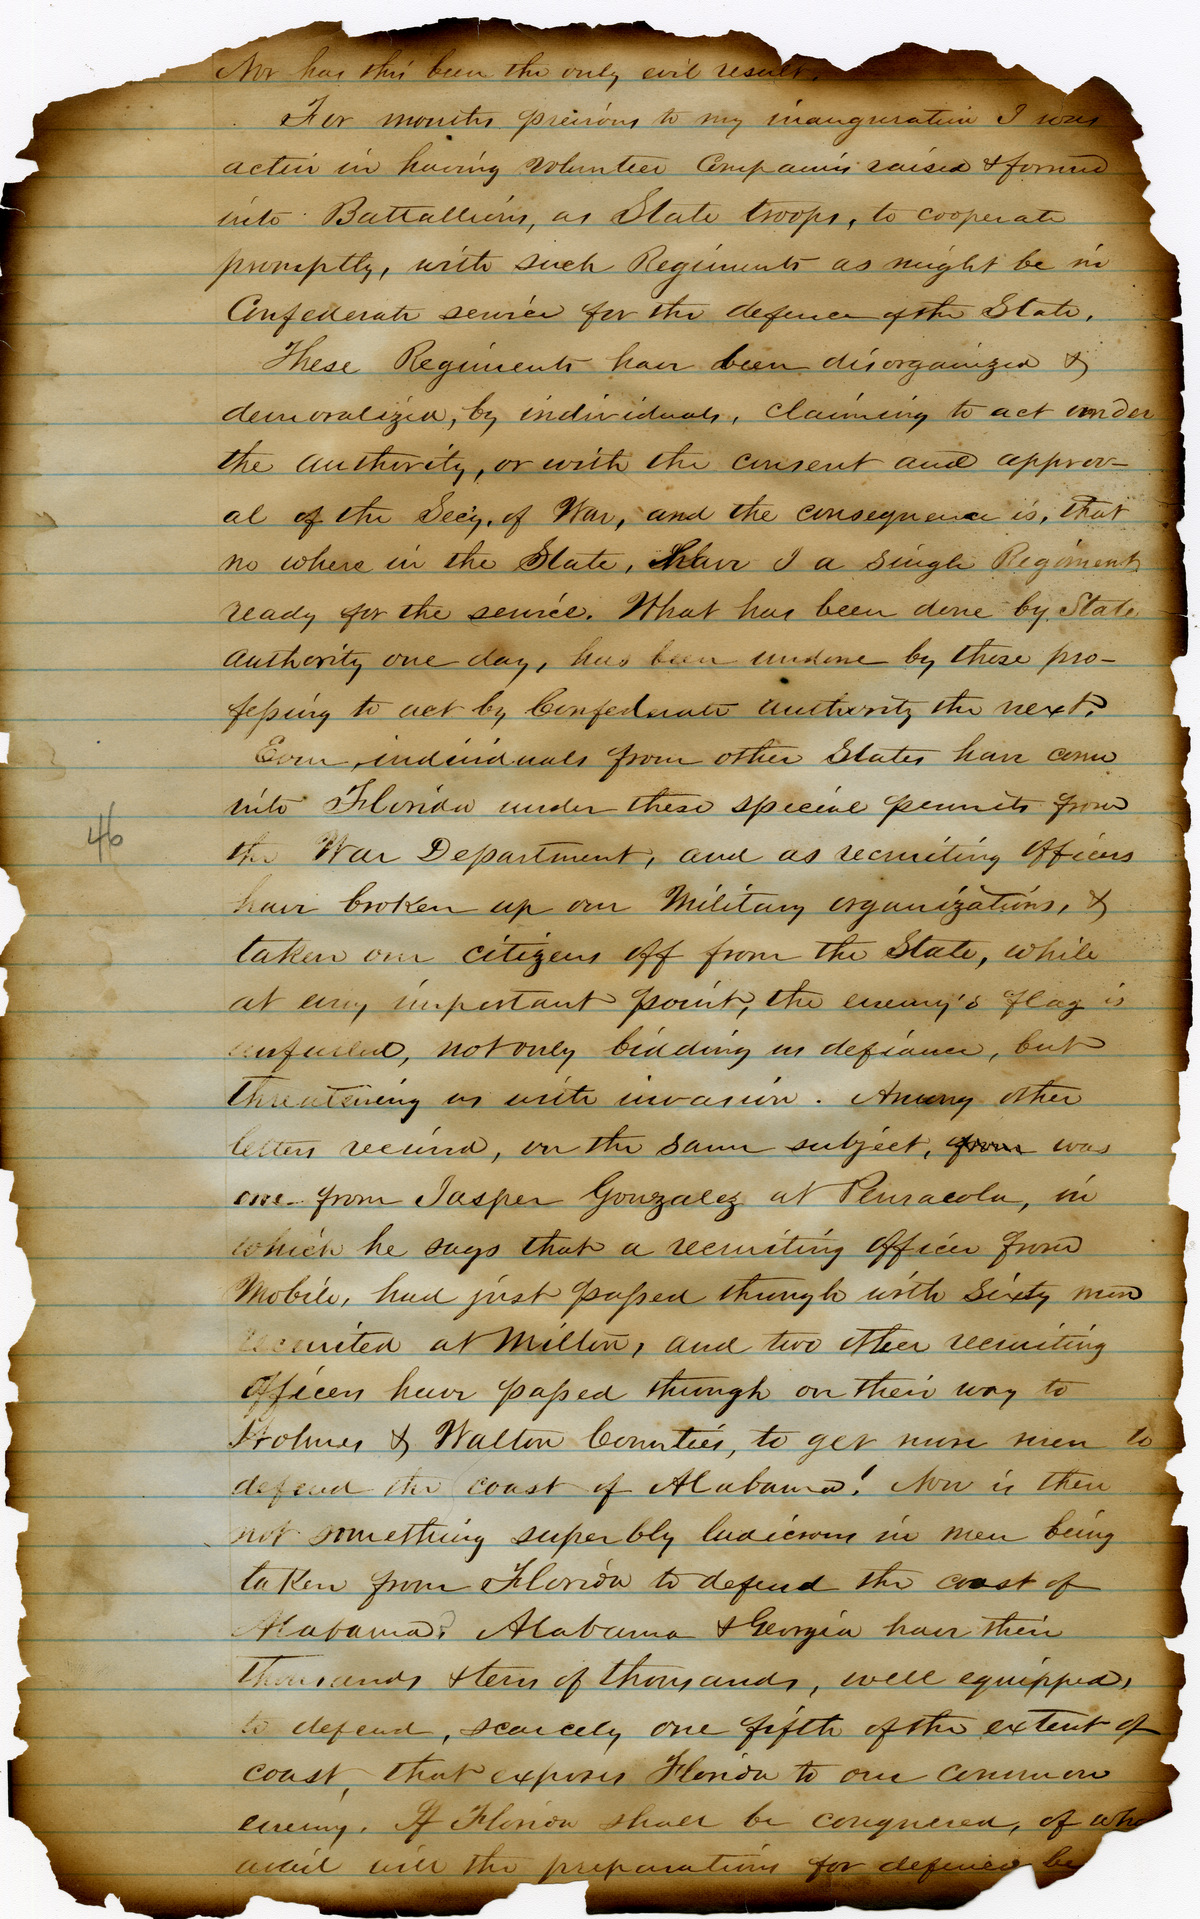 Nor has this been the only evil result.
For months previous to my inauguration I was
active in having volunteer Companies raised & formed
into Battallions, as State troops, to cooperate
promptly, with such Regiments as might be in
Confederate service for the defence of the State.
These Regiments have been disorganized &
demoralized, by individuals, claiming to act under
the authority, or with the consent and approv-
al of the Secy. of War, and the consequence is, that
no where in the State, have I a single Regiment
ready for the service. What has been done by State
authority one day, has been undone by those pro-
fessing to act by Confederate authority the next.
Even individuals from other States have come
into Florida under these special permits from
the War Department, and as recruiting officers
have broken up our Military organizations, &
taken our citizens off from the State, while
46
at every important point, the enemy's flag is
unfurled, not only bidding us defiance, but
threatening us with invasion. Among other
letters received, on the same subject, from was
one from Jasper Gonzalez at Pensacola, in
which he says that a recruiting officer from
Mobile, had just passed through with Sixty men
recruited at Milton, and two other recruiting
officers have passed through on their way to
Holmes & Walton Counties, to get more men to
defend the coast of Alabama! Now is there
not something superbly ludicrous in men being
taken from Florida to defend the coast of
Alabama? Alabama & Georgia have their
thousands & tens of thousands, well equipped,
to defend, scarcely one fifth of the extent of
coast, that exposes Florida to our common
enemy. If Florida shall be conquered, of wha
avail will the preparations for defence be